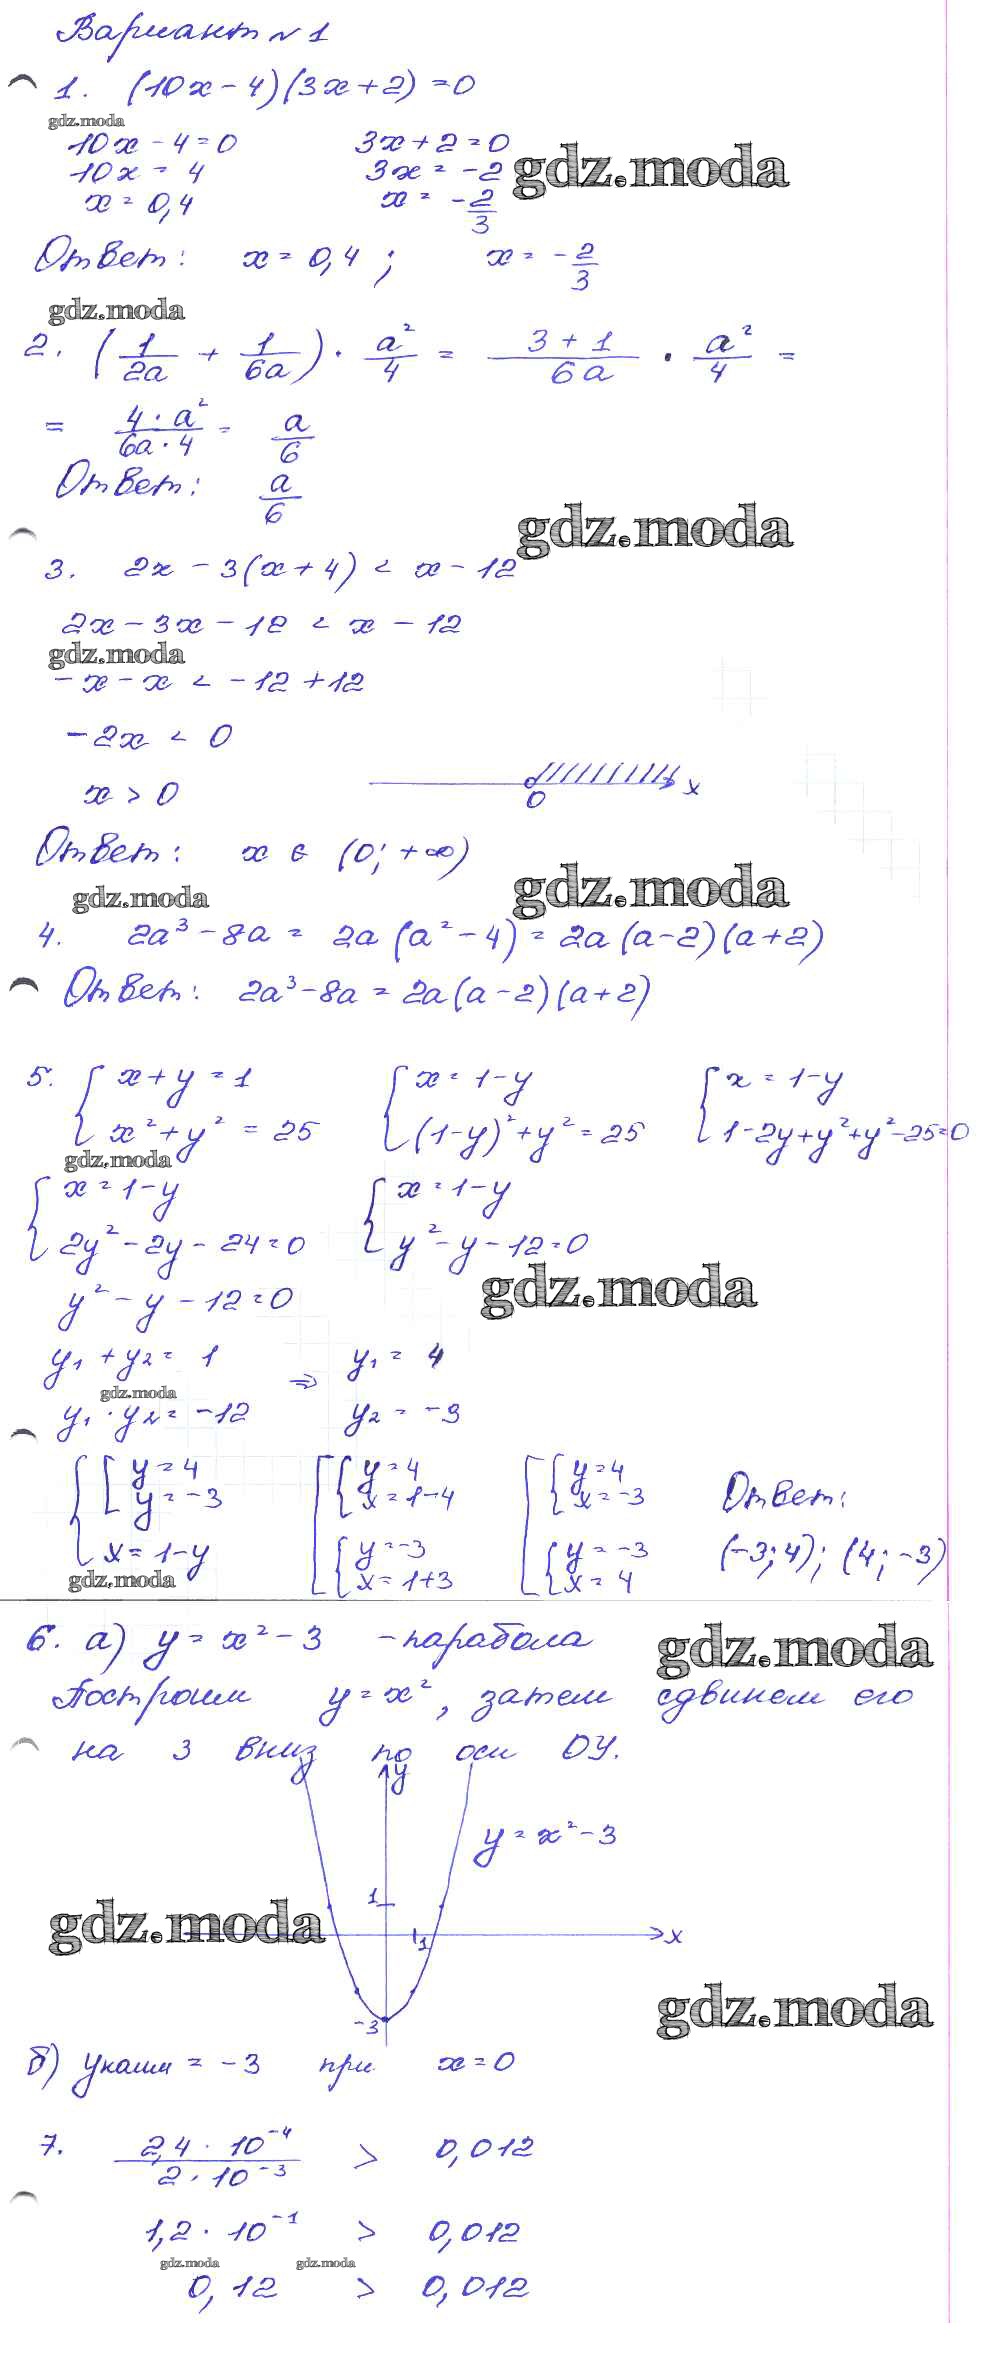 Вариант №1
1. (10x-4)(3x+2)=0
gdz.moda
10x-4=0 3x+2=0
10x=4 3x=-2 gdz.moda
x=0,4 x=-2/3
Ответ: x=0,4; x=-2/3
gdz.moda
2. (1/2a + 1/6a) · a²/4 = (3+1)/6a · a²/4 =
= 4·a²/6a·4 = a/6
Ответ: a/6
gdz.moda
3. 2x-3(x+4) < x-12
2x-3x-12 < x-12
gdz.moda
-x-x < -12+12
-2x < 0
x > 0 0 x
Ответ: x ∈ (0; +∞)
gdz.moda gdz.moda
4. 2a³-8a = 2a(a²-4) = 2a(a-2)(a+2)
Ответ: 2a³-8a = 2a(a-2)(a+2)
5. { x+y=1 { x=1-y { x=1-y
x²+y²=25 (1-y)²+y²=25 1-2y+y²+y²-25=0
gdz.moda
{ x=1-y { x=1-y
2y²-2y-24=0 y²-y-12=0
gdz.moda
y²-y-12=0
y₁+y₂=1 ⇒ y₁=4
gdz.moda
y₁·y₂=-12 y₂=-3
{ [ y=4 [ { y=4 [ { y=4 Ответ:
y=-3 x=1-4 x=-3
x=1-y { y=-3 { y=-3 (-3;4); (4;-3)
gdz.moda x=1+3 x=4
6. а) y=x²-3 -парабола gdz.moda
Построим y=x², затем сдвинем его
на 3 вниз по оси OY.
y
y=x²-3
1
gdz.moda 1 x
gdz.moda
-3
б) yнаим = -3 при x=0
7. 2,4·10⁻⁴/2·10⁻³ > 0,012
1,2·10⁻¹ > 0,012
gdz.moda gdz.moda
0,12 > 0,012